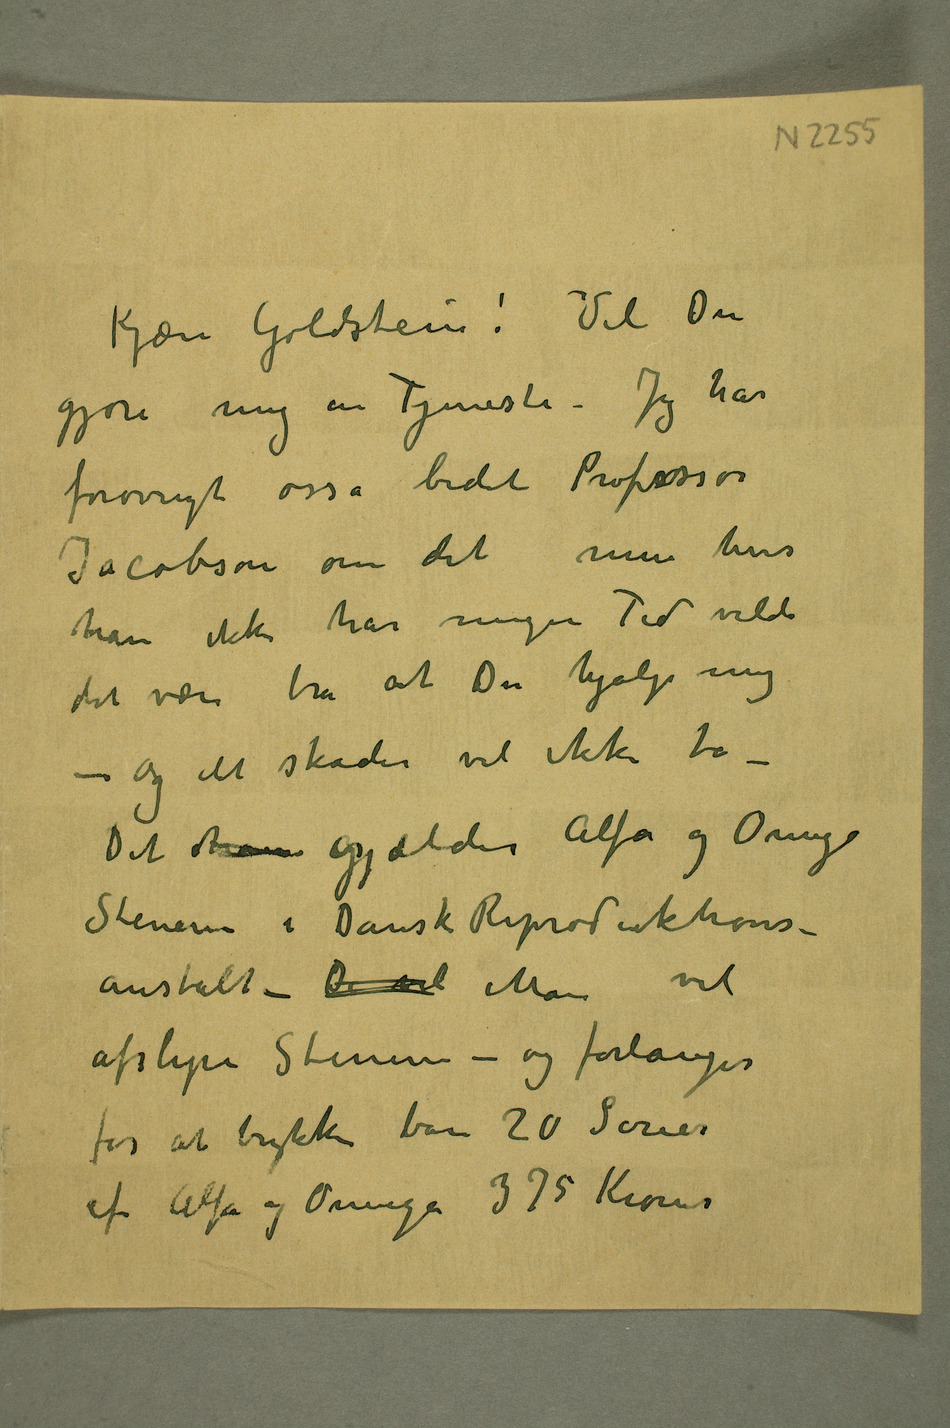 N 2255
Kjære Goldstein! Vil Du
gjøre mig en Tjeneste – Jeg har
forøvrigt osså bedet Professor
Jacobson om det men hvis
han ikke har nogen Tid vilde
det være bra at Du hjalp mig
– og det skader vel ikke to –
Det han gjælder Alfa og Omega
Stenene i Dansk Reproduktions-
anstalt – De vil Man vil
afslipe Stenene – og forlanger
for at trykke bare 20 Serier
af Alfa og Omega 375 Kroner